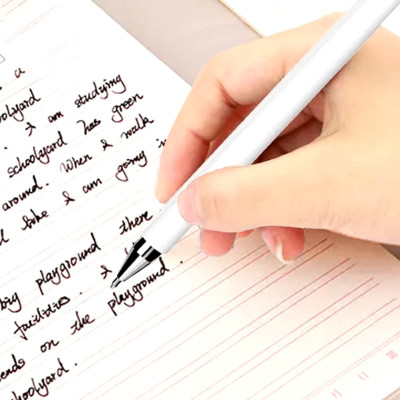 a
oolyard
. I am studying
schoolyard has green
around. When I walk
I am going
there
big playground
facilities. I
ends on the playground.
choolyard.
月 日 第